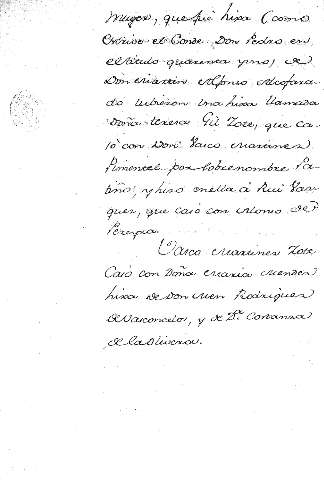 Muger, que fué hixa (como
Escrive el Conde Don Pedro en
el titulo quarenta y no, de
Don Martin Alfonso Alcofara-
do tubieron una hixa llamada
Doña Teresa Gil Zote, que ca-
só con Don Vasco Martinez
Pimentel por sobrenombre Pa-
tiño, y hizo en ella á Rui Vas-
quez, que casó con Alonso de
Pereyra
Vasco Martinez Zote
Casó con Doña Maria Mendez
hixa de Don Men Rodriguez
de Vasconcelos, y de Dª. Constanza
de la Olivera.